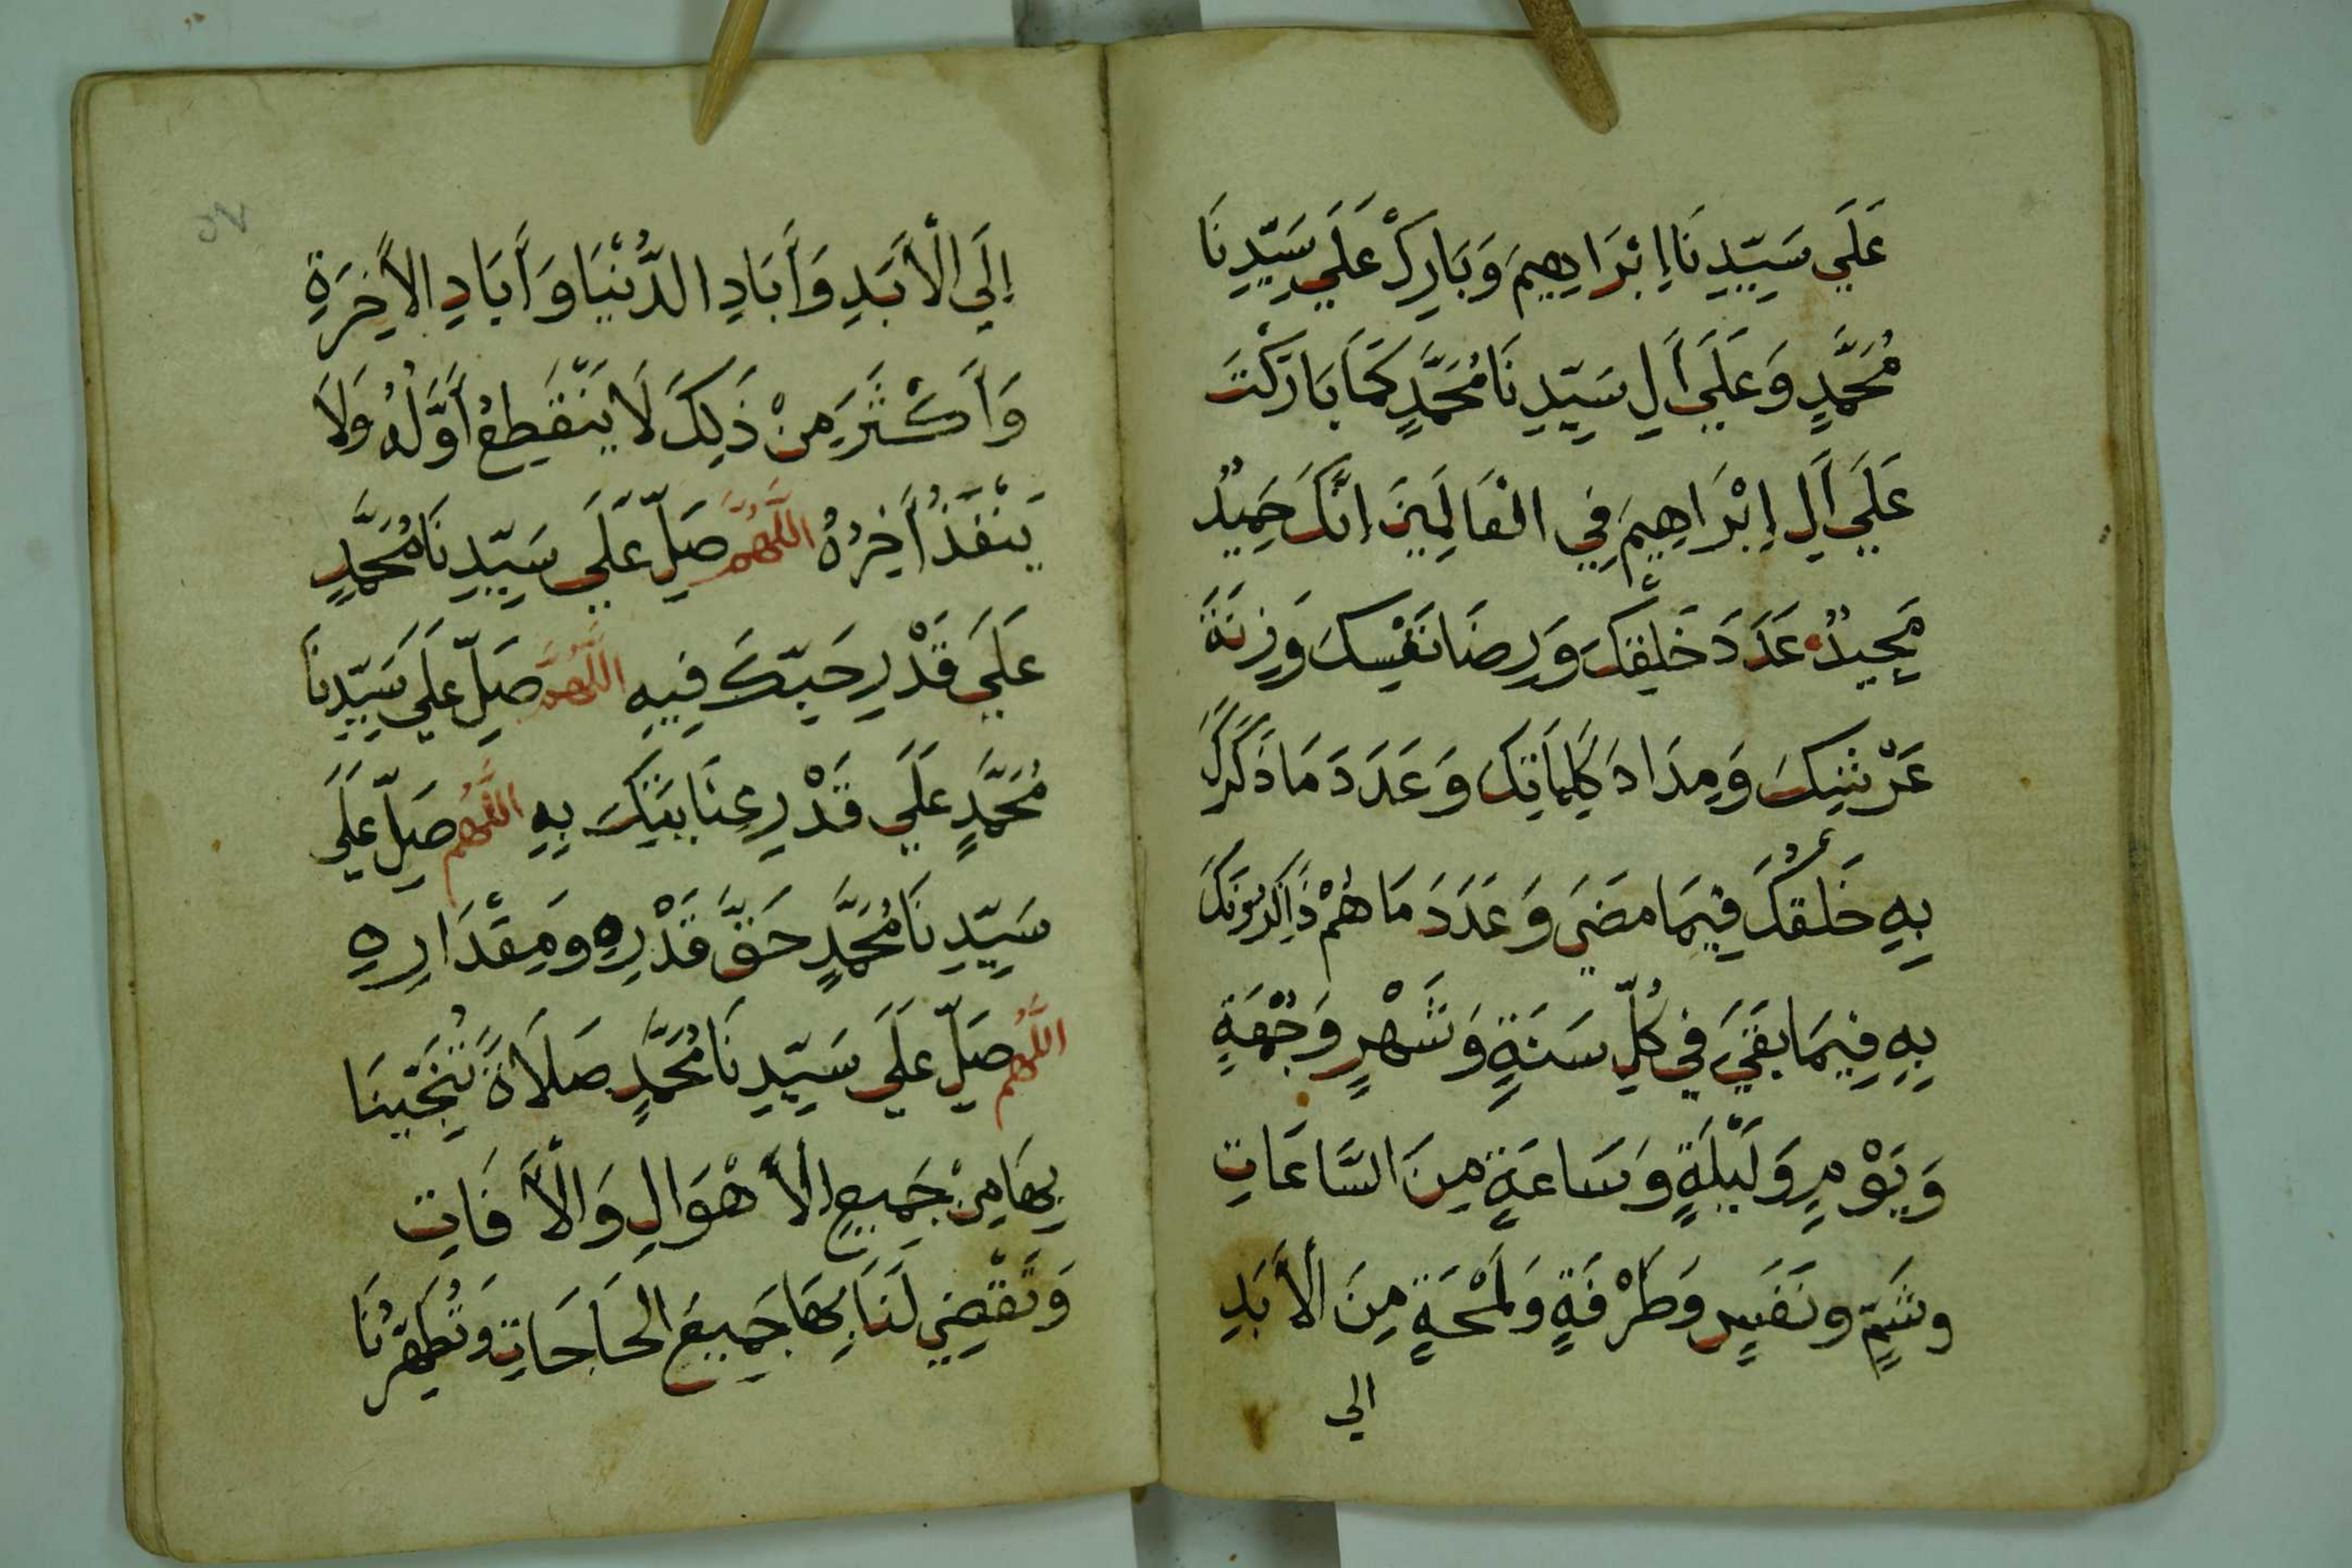 عَلَي سَيِّدِنَا إِبْرَاهِيمَ وَبَارِكْ عَلَي سَيِّدِنَا
مُحَمَّدٍ وَعَلَي أَلِ سَيِّدِنَا مُحَمَّدٍ كَمَا بَارَكْتَ
عَلَي أَلِ إِبْرَاهِيمَ فِي الْعَالَمِينَ إِنَّكَ حَمِيدٌ
مَجِيدٌ عَدَدَ خَلْقِكَ وَرِضَا نَفْسِكَ وَزِنَةَ
عَرْشِكَ وَمِدَادَ كَلِمَاتِكَ وَعَدَدَ مَا ذَكَرَكَ
بِهِ خَلْقُكَ فِيمَا مَضَي وَعَدَدَ مَا هُمْ ذَاكِرُونَكَ
بِهِ فِيمَا بَقَيَ فِي كُلِّ سَنَةٍ وَشَهْرٍ وَجُمْعَةٍ
وَيَوْمٍ وَلَيْلَةٍ وَسَاعَةٍ مِنَ السَّاعَاتِ
وشَمٍّ ونَفَسٍ وَطَرْفَةٍ وَلَمْحَةٍ مِنَ الأَبَدِ
الي
إِلَي الْأَبَدِ وَأَبَادِ الدُّنْيَا وَأَبَادِ الأَخِرَةِ
وَأَكْثَرَ مِنْ ذَلِكَ لَا يَنْقَطِعُ أَوَّلُهُ وَلَا
يَنْفَذُ أَخِرُهُ اللَّهُمَّ صَلِّ عَلَي سَيِّدِنَا مُحَمَّدٍ
عَلَي قَدْرِ حَبِّكَ فِيهِ اللَّهُمَّ صَلِّ عَلَي سَيِّدِنَا
مُحَمَّدٍ عَلَي قَدْرِ عِنَايَتِكَ بِهِ اللَّهُم صَلِّ عَلَي
سَيِّدِنَا مُحَمَّدٍ حَقَّ قَدْرِهِ ومَِقْدَارِهِ
اللَّهُم صَلِّ عَلَي سَيِّدِنَا مُحَمَّدٍ صَلَاةً تُنَجِّينَا
بِهَا مِنْ جَمِيعِ الأَهْوَالِ وَالْأَفَاتِ
وَتَقْضِي لَنَا بِهَا جَمِيعَ الحَاجَاتِ وَتُطَهِّرُنَا